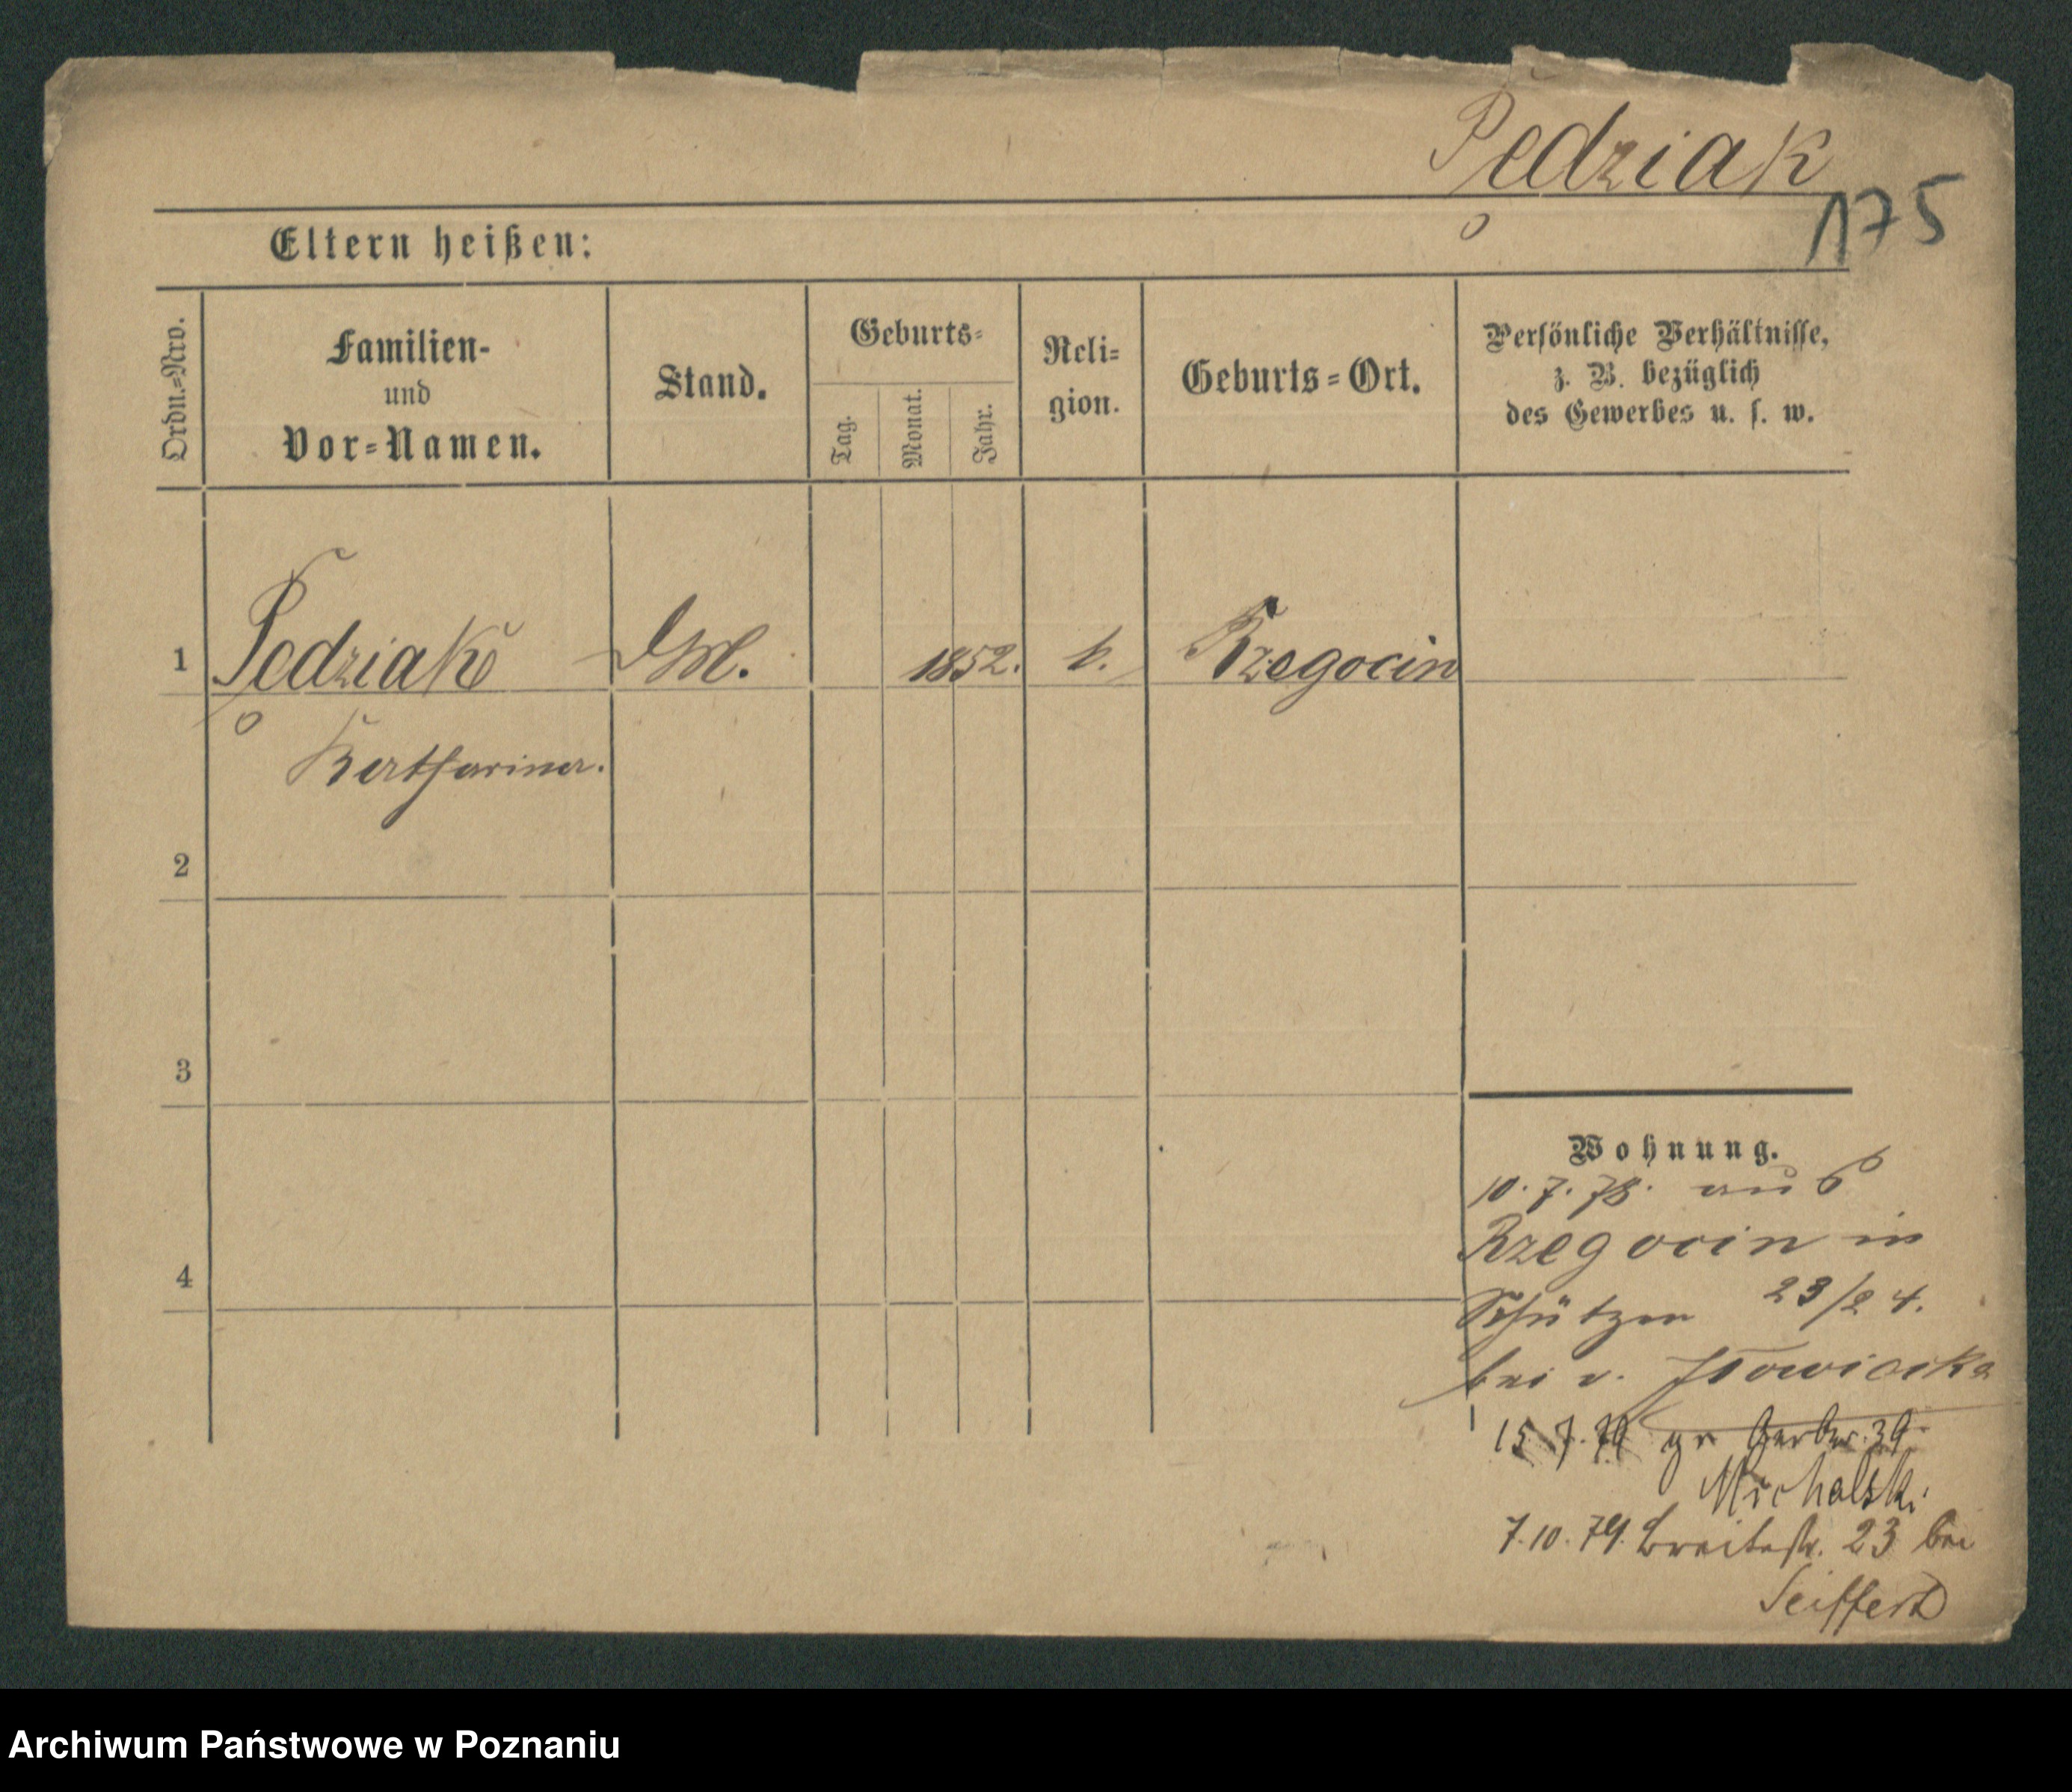 Pedziak
175
Eltern heißen:
Ordn.-Nro.
Familien-
und
Vor-Namen.
Stand.
Geburts-
Tag.
Monat.
Jahr.
Reli-
gion.
Geburts-Ort.
Persönliche Verhältnisse,
z. B. bezüglich
des Gewerbes u. s. w.
1 Pedziak DM. 1852. k. Rzegocin
Katharina.
2
3
4
Wohnung.
10. 7. 78. aus
Rzegocin in
Schützen 23/24.
bei v.
15 7. 79 gr Gerber. 39.
Michalski
7. 10. 79. Breitestr. 23 bei
Seiffert
Archiwum Państwowe w Poznaniu